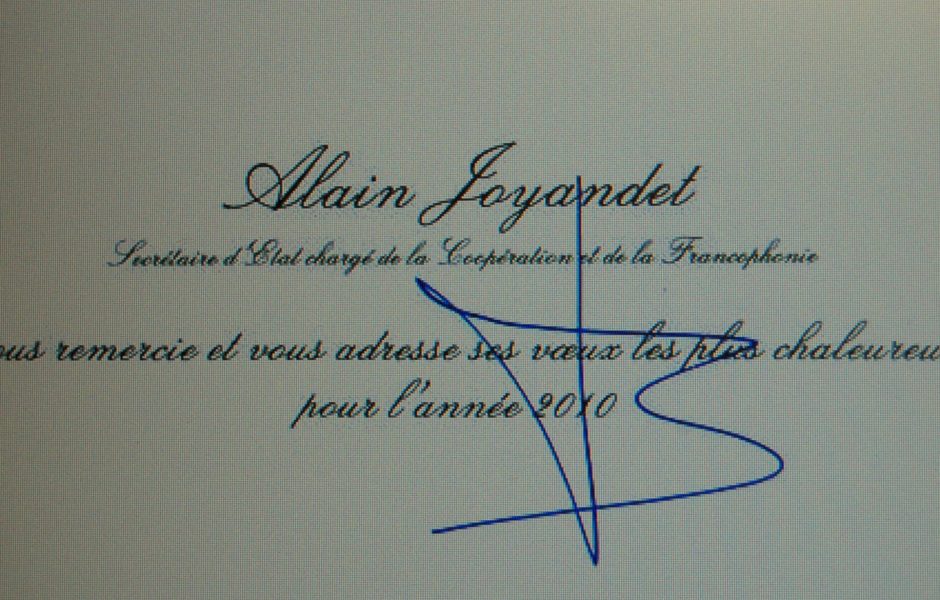 Alain Joyandet
Secrétaire d'Etat chargé de la Coopération et de la Francophonie
ous remercie et vous adresse ses vœux les plus chaleureu
pour l'année 2010